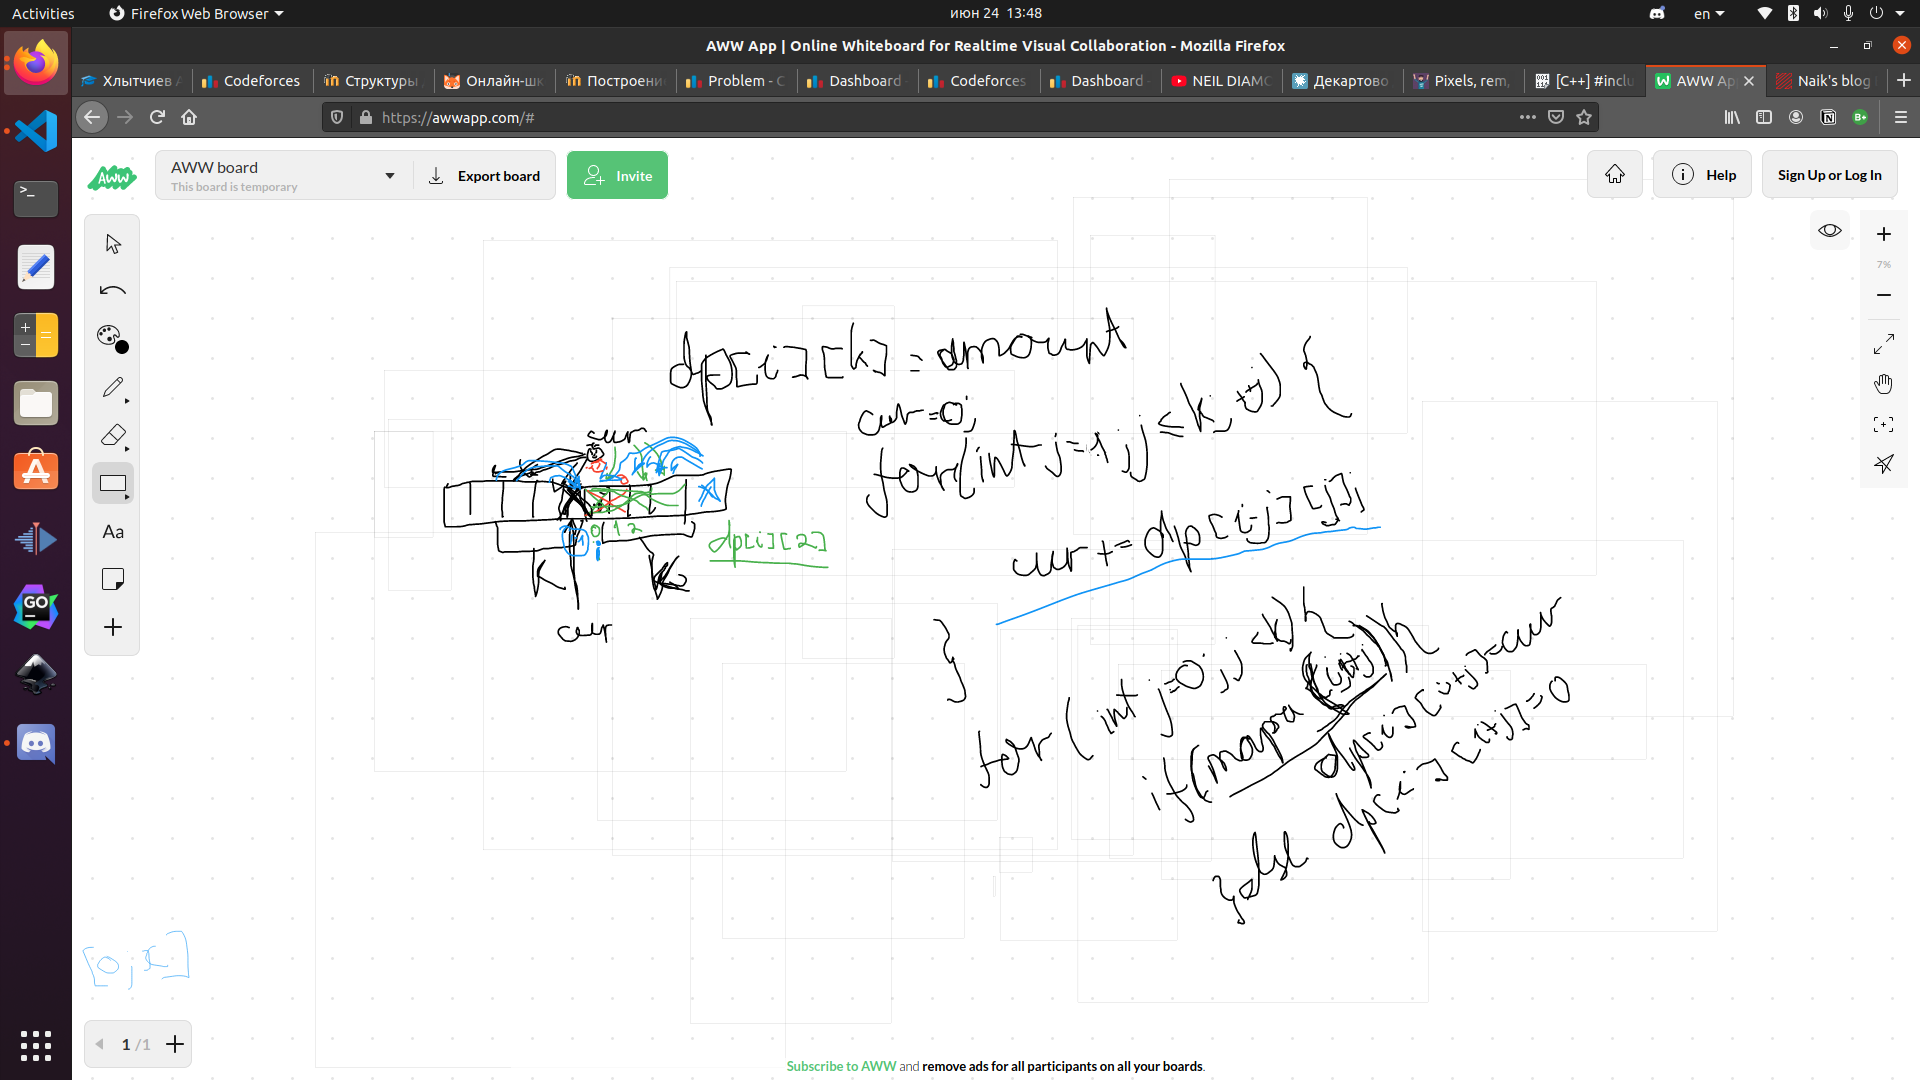 Activities
Firefox Web Browser
июн 24 13:48
en
AWW App | Online Whiteboard for Realtime Visual Collaboration - Mozilla Firefox
Хлытчиев А
Codeforces
Структуры
Онлайн-шк
Построени
Problem - C
Dashboard
Codeforces
Dashboard
NEIL DIAMO
Декартово
Pixels, rem,
[C++] #inclu
AWW Ap
Naik's blog
https://awwapp.com/#
AWW
AWW board
This board is temporary
Export board
Invite
Help
Sign Up or Log In
7%
Aa
GO
dp[i][k] = amount
cur=0;
for(int j=1; j≤k; +j) {
cur += dp[i-j][j];
}
for (int j=0; j ≤k)
dp[i][i+j]=cur
dp[i][i+j]=0
cur
0 1 2
i
dp[i][2]
K
cur
[0;x]
1 /1
Subscribe to AWW and remove ads for all participants on all your boards.